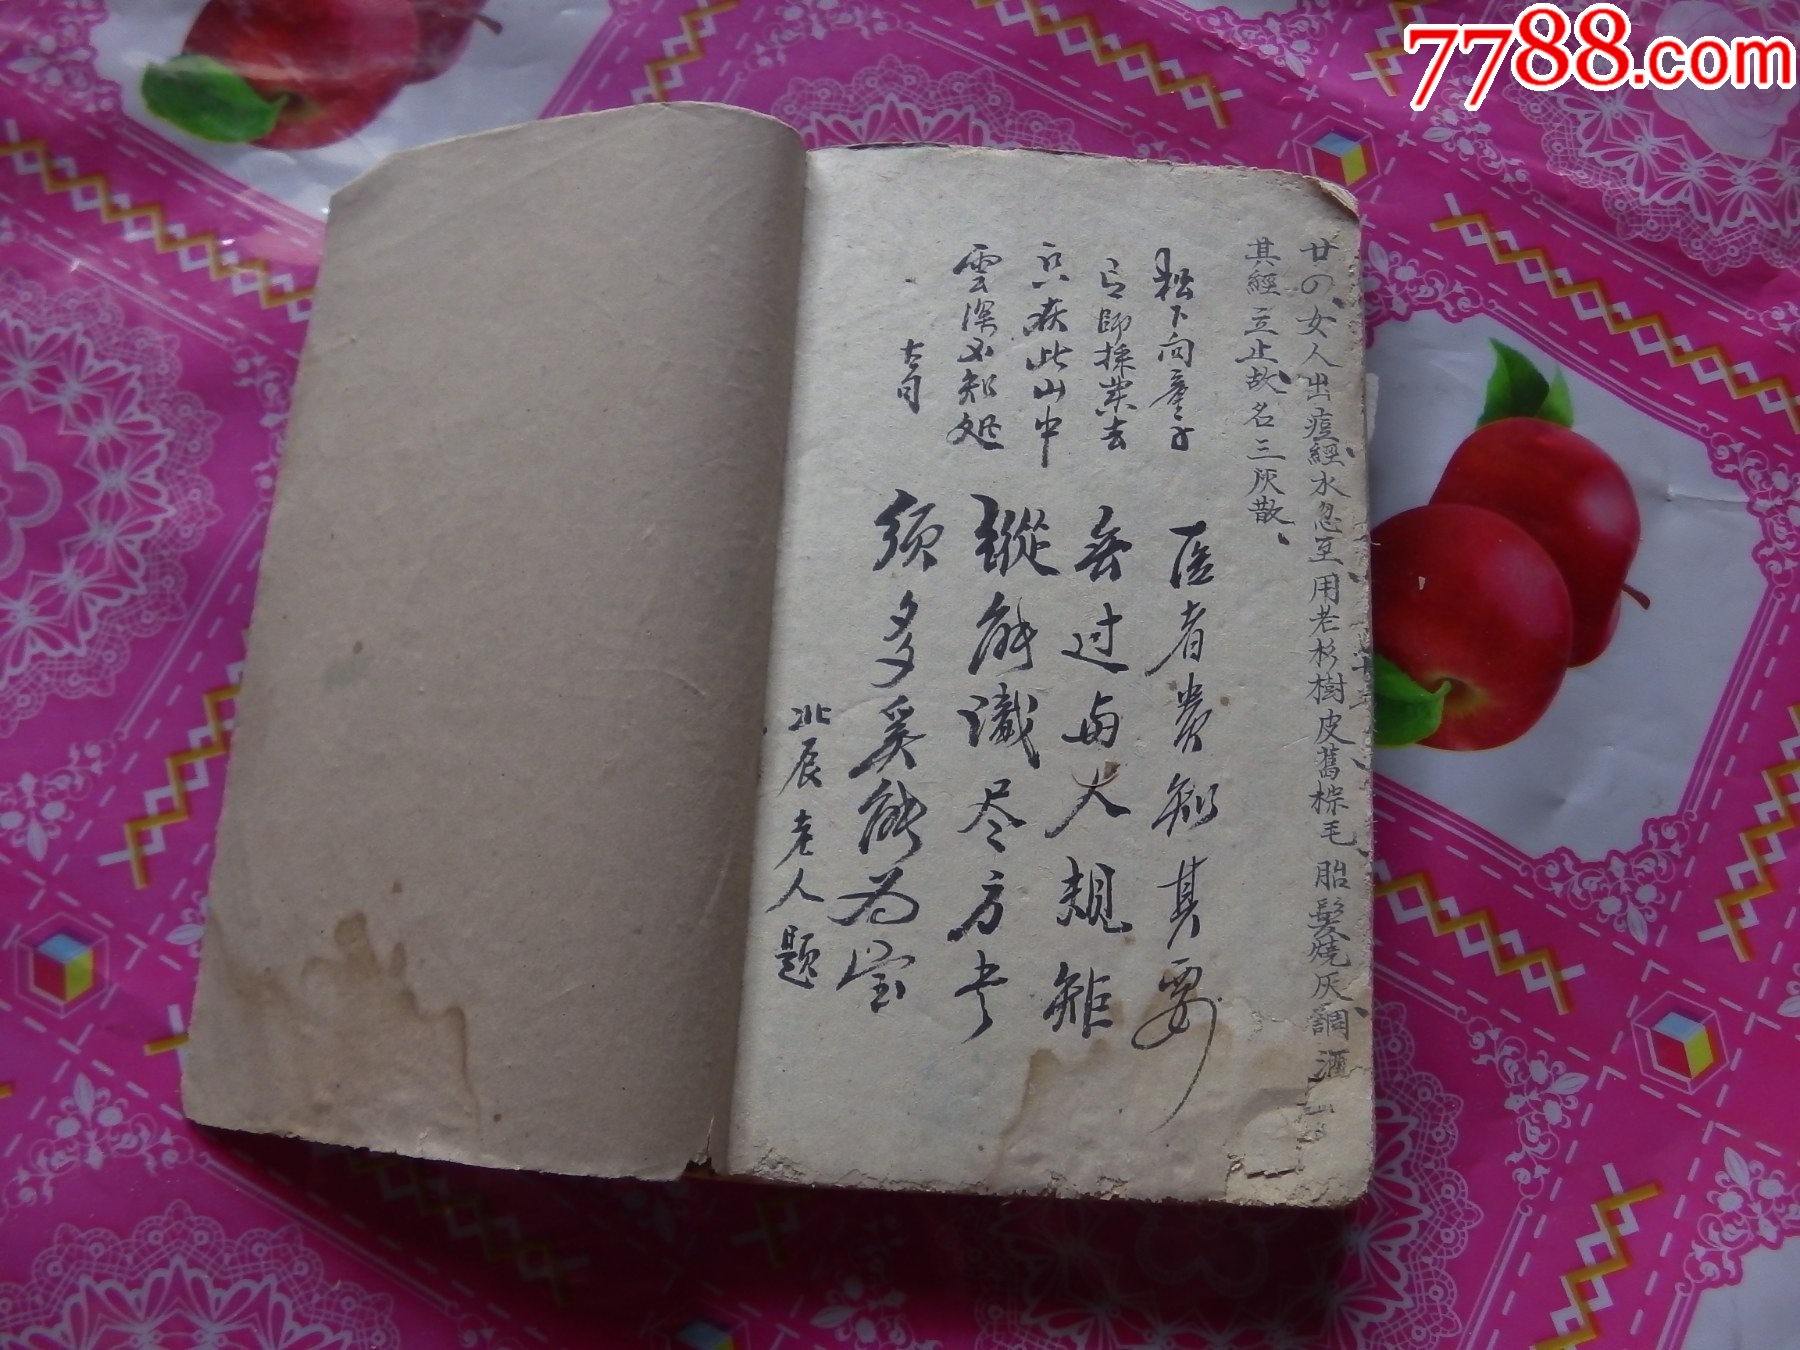 7788.com
廿四女人出痘經水忽至用老杉樹皮舊棕毛胎髮燒灰調酒
其經立止故名三灰散
松下问童子
言師採药去
只在此山中
雲深不知処
古詩
医者贵知其要
無过与人規矩
縱能識尽方书
須多奚能为宝
北辰老人題